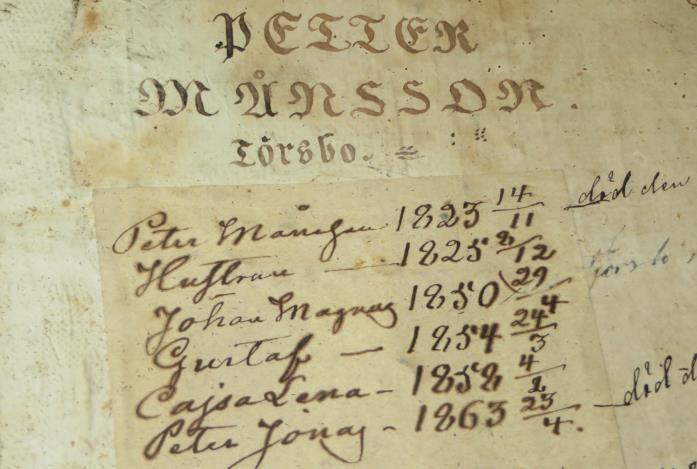 PETTER
MÅNSSON.
Törsbo.
Peter Månsson 1823 14/11 död den
Hustrun — 1825 8/12
Johan Magnus 1850 29/4
Gustaf — 1854 24/3
Cajsa Lena - 1858 4/2
Peter Jonas - 1863 23/4. död d